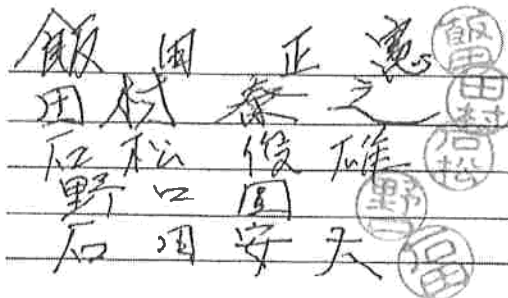 飯田正憲 飯田
田村泰之 田村
石松俊雄 石松
野口圓 野口
石田安夫 石田